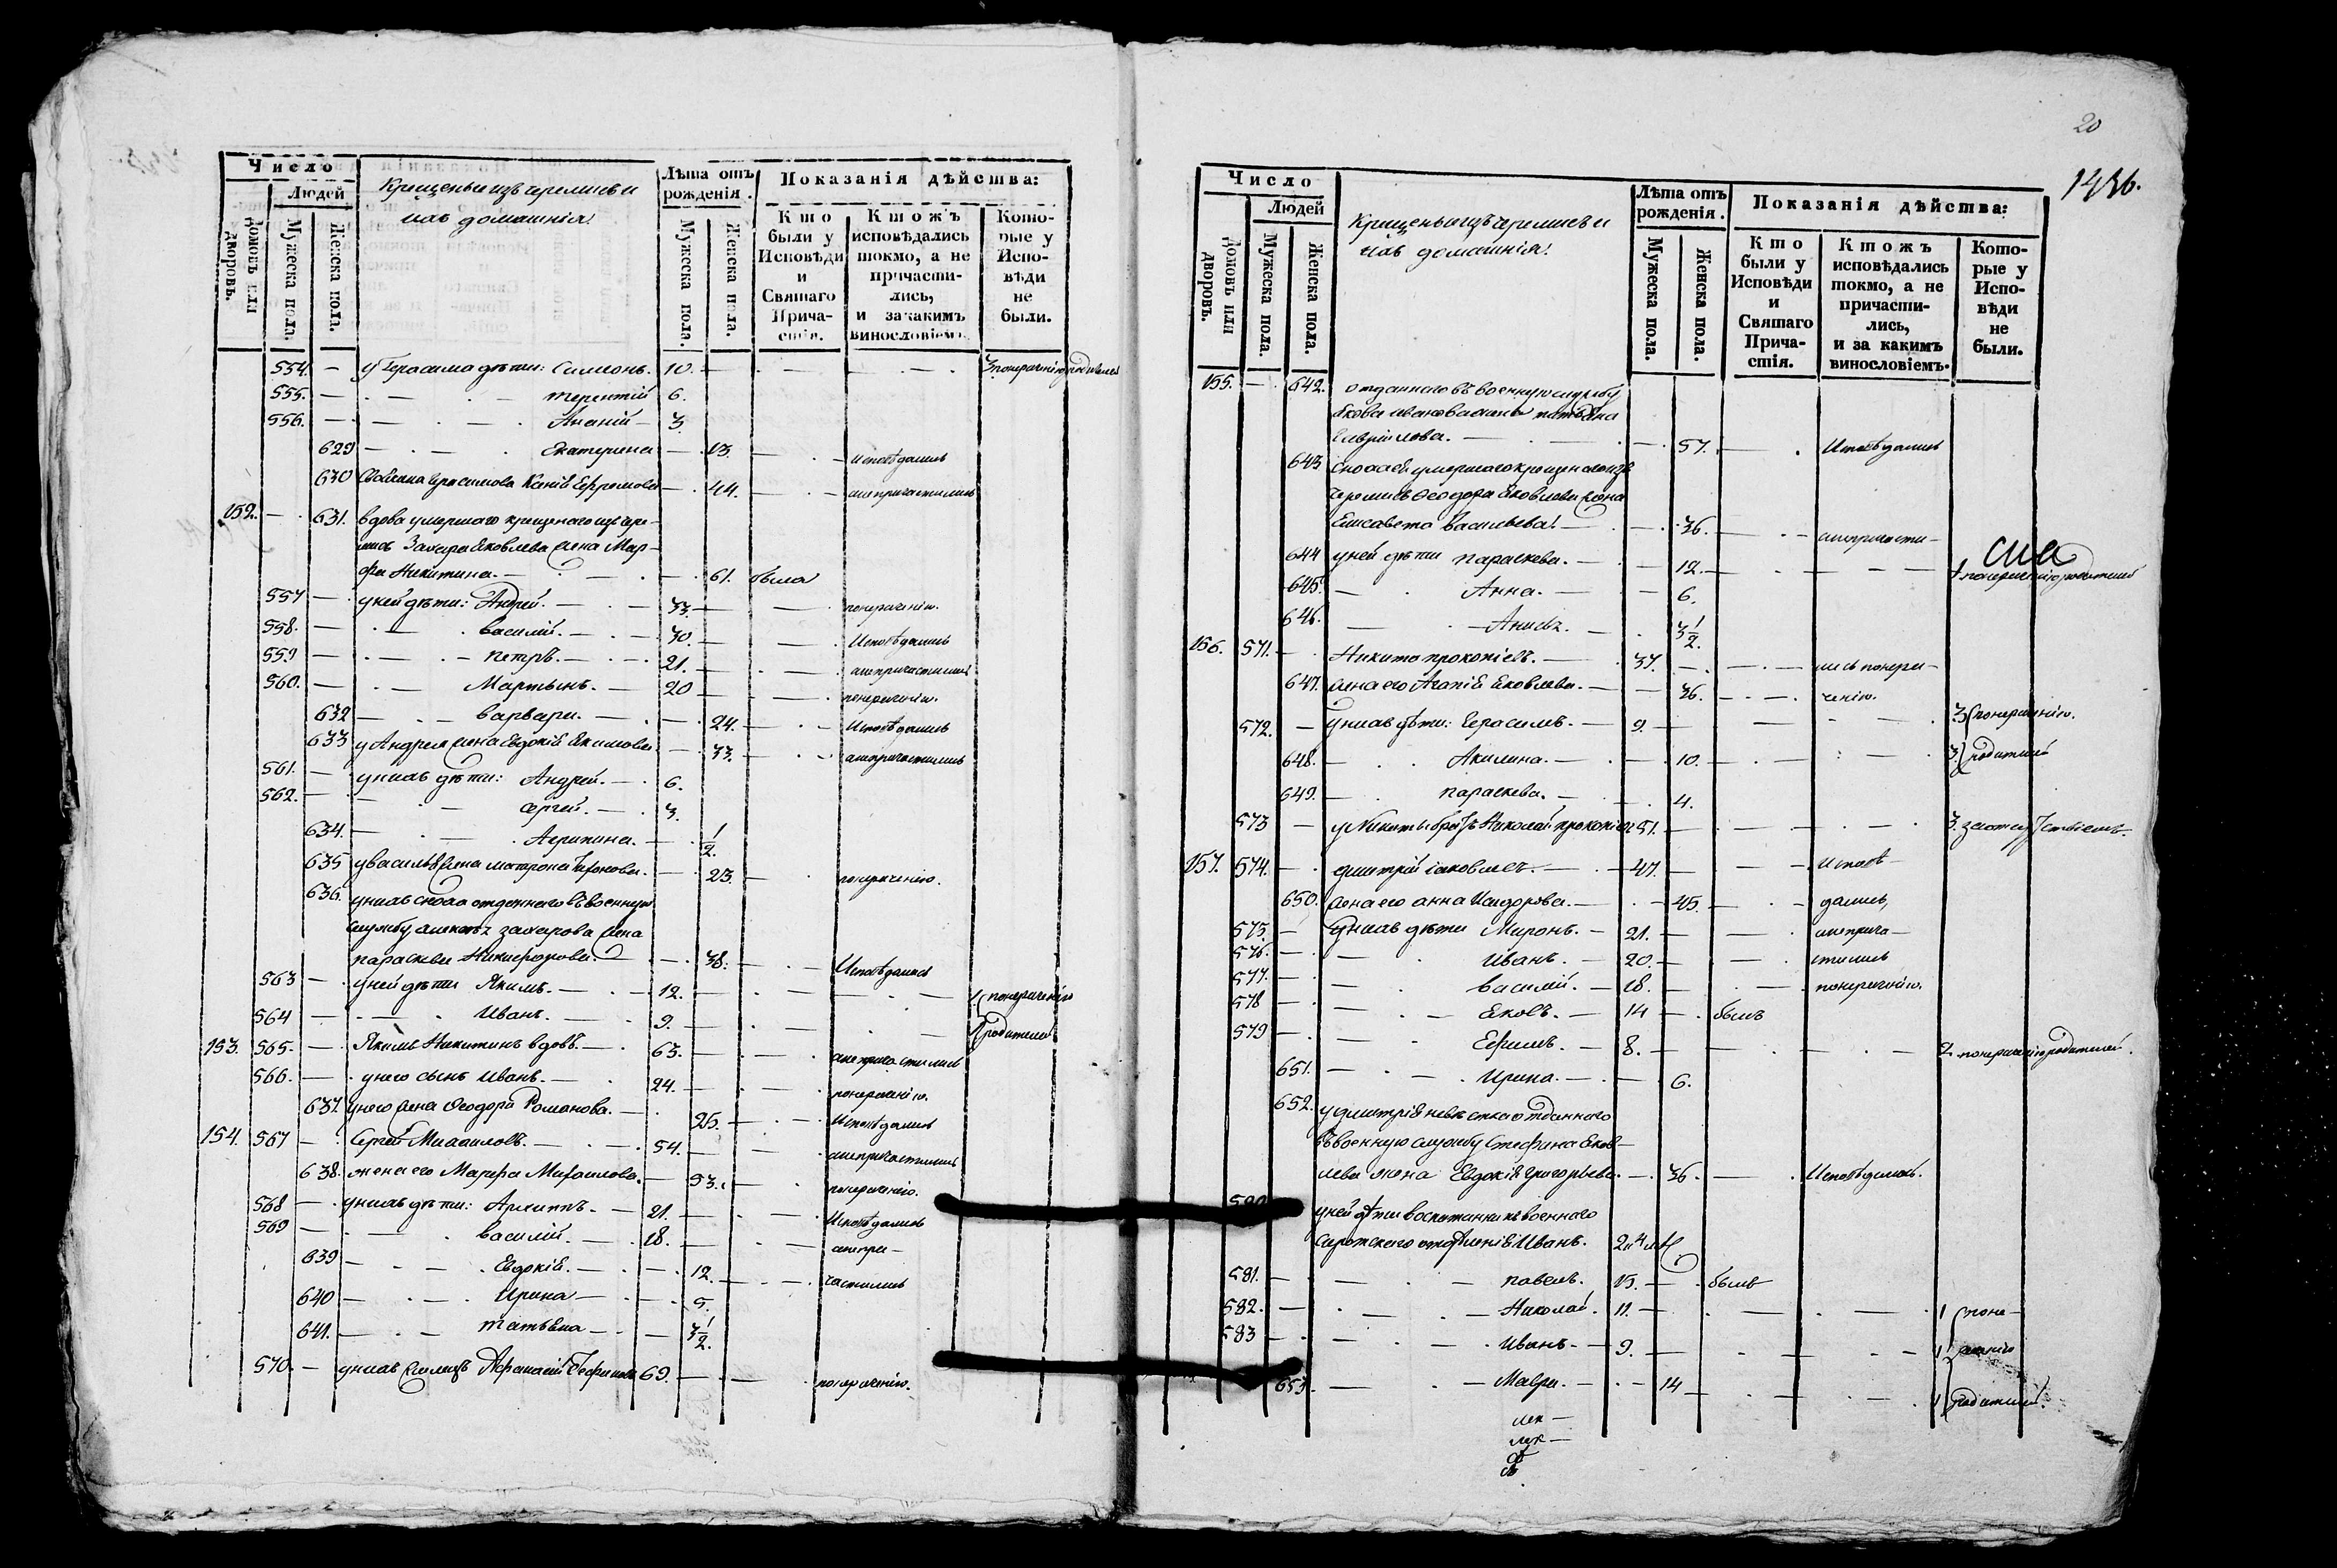 Число
Людей
домовъ или дворовъ.
Мужеска пола.
Женска пола.
Крещеныя изъ черемисъ и
ихъ домашнія
Лѣта отъ рожденія.
Мужеска пола.
Женска пола.
Показанія дѣйства:
Кто были у Исповѣди и Святаго Причастія.
Ктожъ исповѣдались токмо, а не причастились, и за какимъ винословіемъ.
Которые у Исповѣди не были.
554. — у Герасима дѣти: Симеонъ. 10. 3 по нераченію родителей
555. — терентій 6.
556. — Ананій 3.
629 — Екатерина — 13. Исповѣдались
630 Герасимова Ксенія Ефремова — 44. а не причастились
152. — 631. вдова умершаго крещенаго изъ чере-
мисъ Захара Яковлева жена Мар-
фа Никитина. — 61. была
557 — у ней дѣти: Андрей. — 33 — по нераченію.
558. — василій. — 30. — Исповѣдались
559 — петръ. — 21. — а не причастились
560. — Мартынъ. — 20 — по нераченію.
632 — варвара. — 24. — Исповѣдались
633 у Андрея жена Евдокія Якимова — 33. а не причастились
561. — у нихъ дѣти: Андрей. — 6.
562. — Сергей. — 3.
634. — Агрипина. — 1/2.
635 у василья жена матрона — 23. по нераченію.
636. у нихъ сноха отданнаго въ военную
службу захарова жена
параскева Никифорова. — 38. — Исповѣдалась
563 — у ней дѣти Якимъ. — 12. — 1 по нераченію
564 — Иванъ. — 9. — 1 родителей
153. 565. — Якимъ Никитинъ вдовъ. — 63. — а не причастились
566. — у него сынъ Иванъ. — 24. — по нераченію.
637. у него жена Феодора Романова. — 25. — Исповѣдались
154. 567 — Сергей Михаиловъ. — 54. — а не причастились
638. жена его Марфа Михаилова. — 53. — по нераченію.
568 — у нихъ дѣти: Архиппъ. — 21. — Исповѣдались
569 — василій. — 18. — а не при-
639 — Евдокія. — 12. — частились
640 — Ирина — 5.
641. — татьяна — 3 1/2.
570. — у нихъ Афанасій 69. — по нераченію.
20
1436.
Число
Людей
домовъ или дворовъ.
Мужеска пола.
Женска пола.
Крещеныя изъ черемисъ и
ихъ домашнія
Лѣта отъ рожденія.
Мужеска пола.
Женска пола.
Показанія дѣйства:
Кто были у Исповѣди и Святаго Причастія.
Ктожъ исповѣдались токмо, а не причастились, и за какимъ винословіемъ.
Которые у Исповѣди не были.
155. — 642. отданнаго въ военную службу
Якова Иванова жена татьяна
Гаврилова. — 57. — Исповѣдались
643 сноха ей умершаго крещенаго изъ
черемисъ Феодора Яковлева жена
Елисавета васильева — 36. — а не причасти-
644 у ней дѣти параскева. — 12. — 1 по нераченію родителей
645. — Анна. — 6.
646. — 3 1/2.
156. 571. — Никита прокопіевъ. — 37. — лись по нера-
647. жена его Агапія Яковлева. — 36. — ченію.
572. — у нихъ дѣти: Герасимъ. — 9. — 3 по нераченію.
648. — Акилина. — 10. — 3. родителей
649. — параскева. — 4.
573 — у Никиты братъ Николай прокопіевъ 51. — 3. за отсутствіемъ.
157. 574. — дмитрій іаковлевъ. — 47. — Исповѣ-
650. жена его анна Исидорова. — 45. — дались,
575. — у нихъ дѣти Миронъ. — 21. — а не прича-
576. — Иванъ. — 20. — стились
577. — василій. — 18. — по нераченію.
578 — Яковъ. — 14 — былъ
579 — Ефимъ. — 8. — 2 по нераченію родителей.
651. — Ирина. — 6.
652. у дмитрія невѣстка отданнаго
въ военную службу Стефана Яков-
лева жена Евдокія григорьева. — 36. — Исповѣдалась.
580 у ней дѣти воспитанникъ военнаго
сиротскаго отдѣленія Иванъ.
581. — павелъ. 15. — былъ
582. — Николай. 11. — 1 по не-
583 — Иванъ. — 9. — 1 раченію
653. — Мавра. — 14 — 1 родителей.